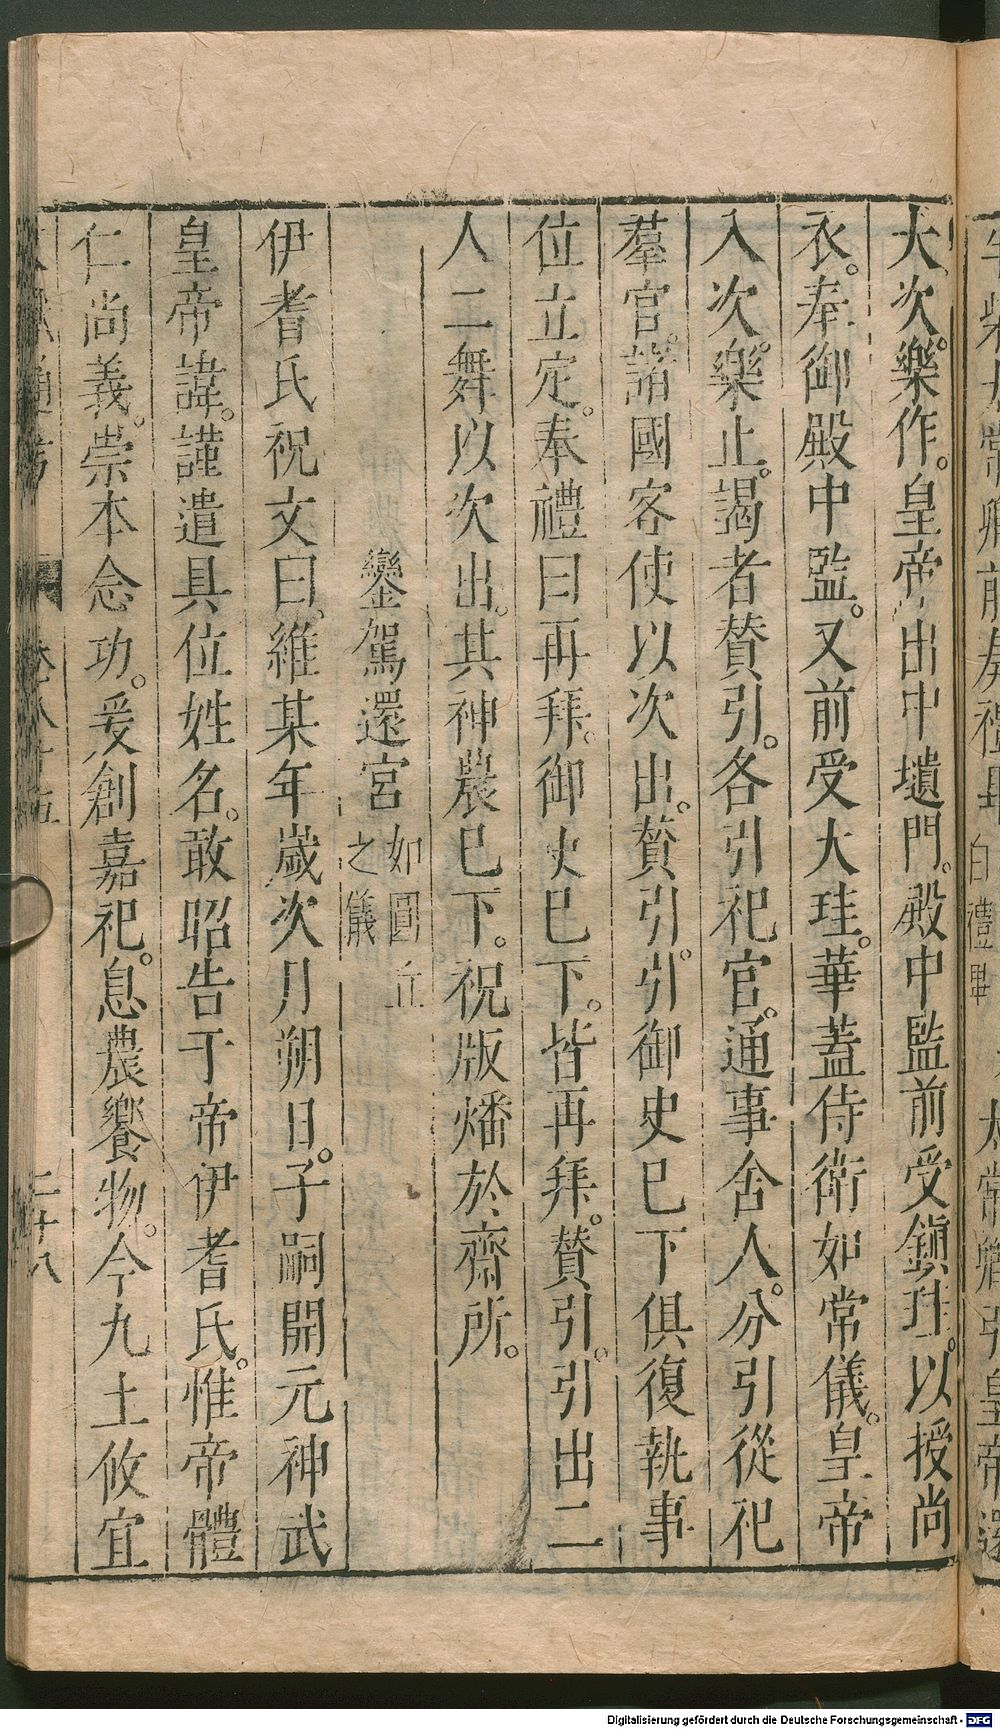 大次。樂作。皇帝出中壝門。殿中監前受鎭珪。以授尚
衣。奉御殿中監。又前受大珪。華蓋侍衛如常儀。皇帝
入次。樂止。謁者贊引。各引祀官。通事舍人。分引從祀
羣官。諸國客使以次出。贊引。引御史巳下俱復執事
位立定。奉禮曰再拜。御史巳下。皆再拜。贊引。引出二
人二舞以次出。其神農巳下。祝版燔於齋所。
鑾駕還宮如圓丘之儀
伊耆氏祝文曰。維某年歲次月朔日。子嗣開元神武
皇帝諱。謹遣具位姓名。敢昭告于帝伊耆氏。惟帝體
仁尚義。崇本念功。爰創嘉祀。息農饗物。今九土攸宜
通考 卷八十五 二十八
Digitalisierung gefördert durch die Deutsche Forschungsgemeinschaft - DFG